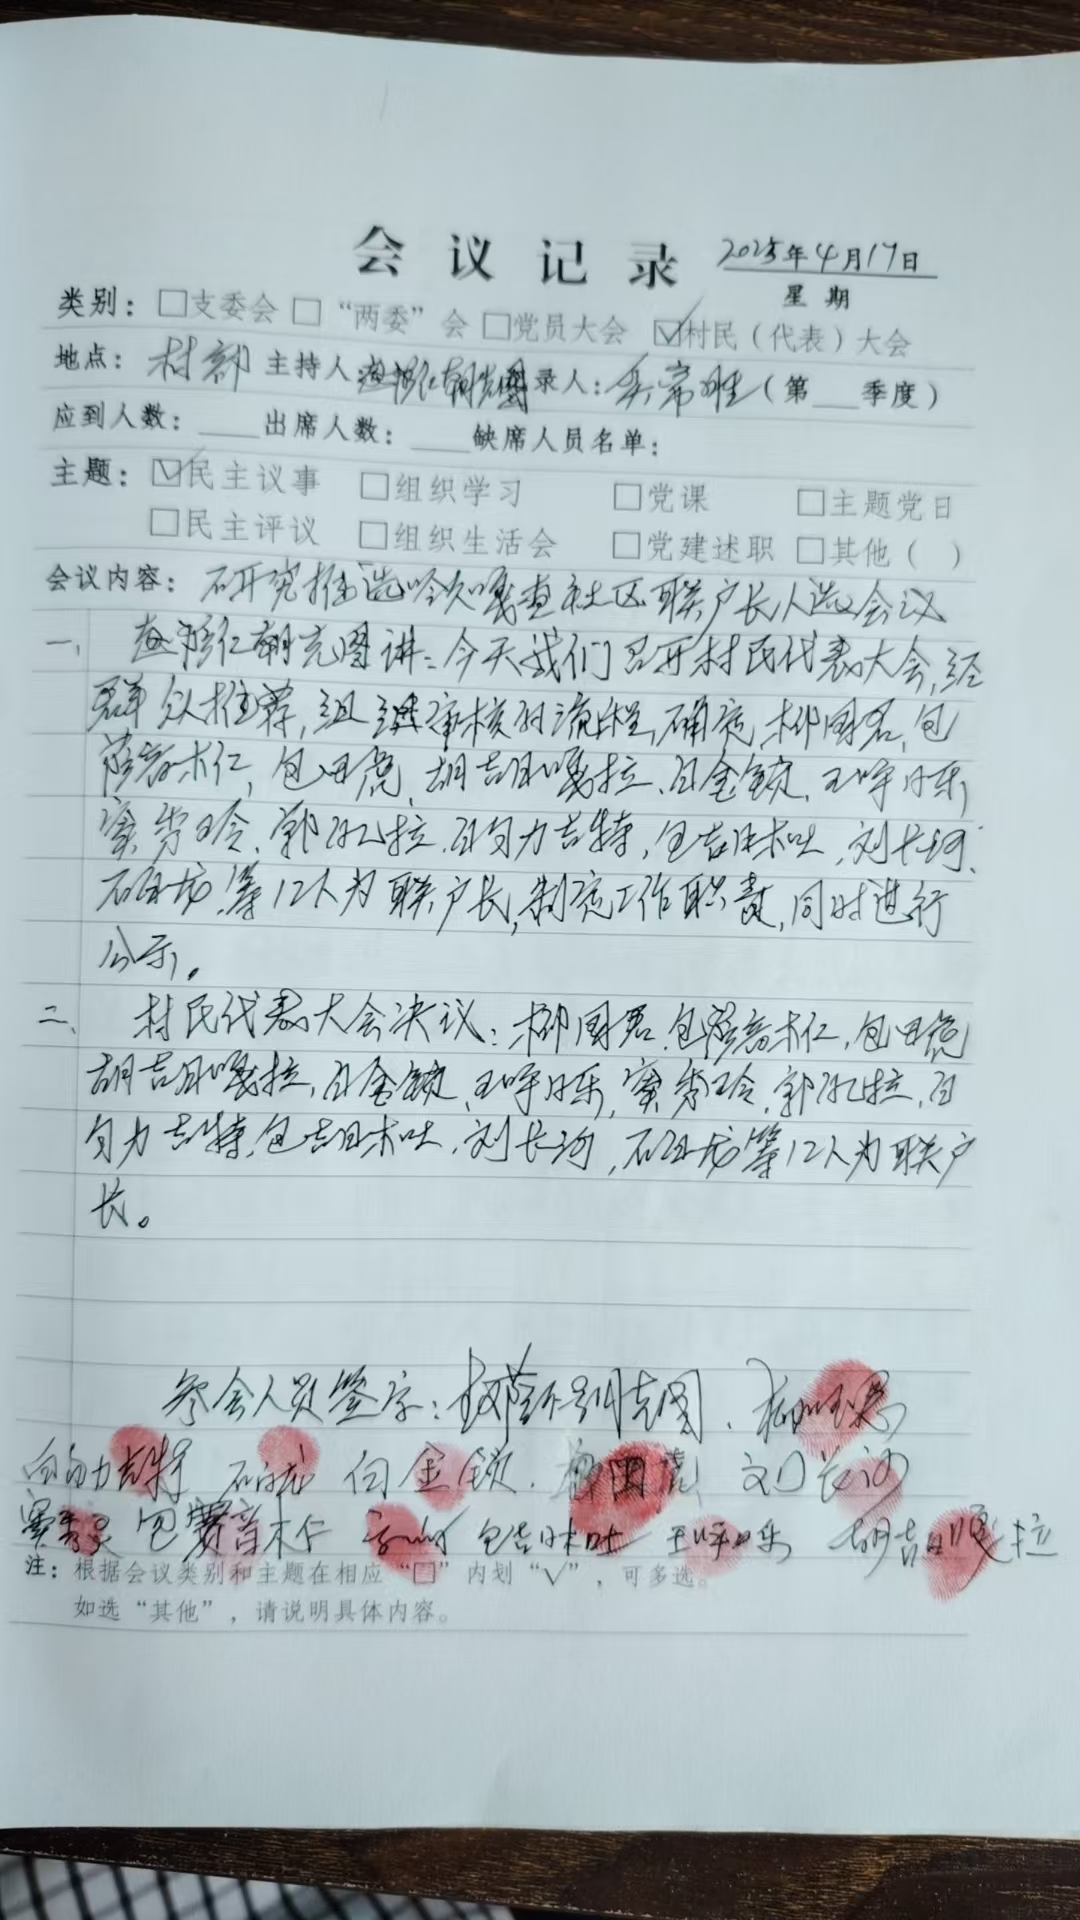 会议记录 2025年4月17日
星期
类别：□支委会 □“两委”会 □党员大会 ☑村民（代表）大会
地点：村部 主持人： 朝克图 录人： 常胜（第__季度）
应到人数：____出席人数：____缺席人员名单：
主题：☑民主议事 □组织学习 □党课 □主题党日
□民主评议 □组织生活会 □党建述职 □其他（ ）
会议内容：研究推选 嘎查社区联户长人选会议
一、 仁朝克图讲：今天我们召开村民代表大会，经
群众推荐，组 审核 流程，确定，柳国君，包
赛音木仁，包田虎，胡吉日嘎拉、白金锁，王呼日乐，
秀玲、郭 拉，白旬力吉特，包吉日木吐，刘长河，
石 等12人为联户长，制定工作职责，同时进行
公示。
二、村民代表大会决议：柳国君，包赛音木仁，包田虎
胡吉日嘎拉，白金锁、王呼日乐， 秀玲，郭 拉，白
旬力吉特，包吉日木吐，刘长河，石 等12人为联户
长。
参会人员签字： 朝克图、
白旬力吉特 石 白金锁． 田虎 刘长河
包赛音木仁 包吉日木吐 王呼日乐 胡吉日嘎拉
注：根据会议类别和主题在相应“□”内划“√”，可多选。
如选“其他”，请说明具体内容。